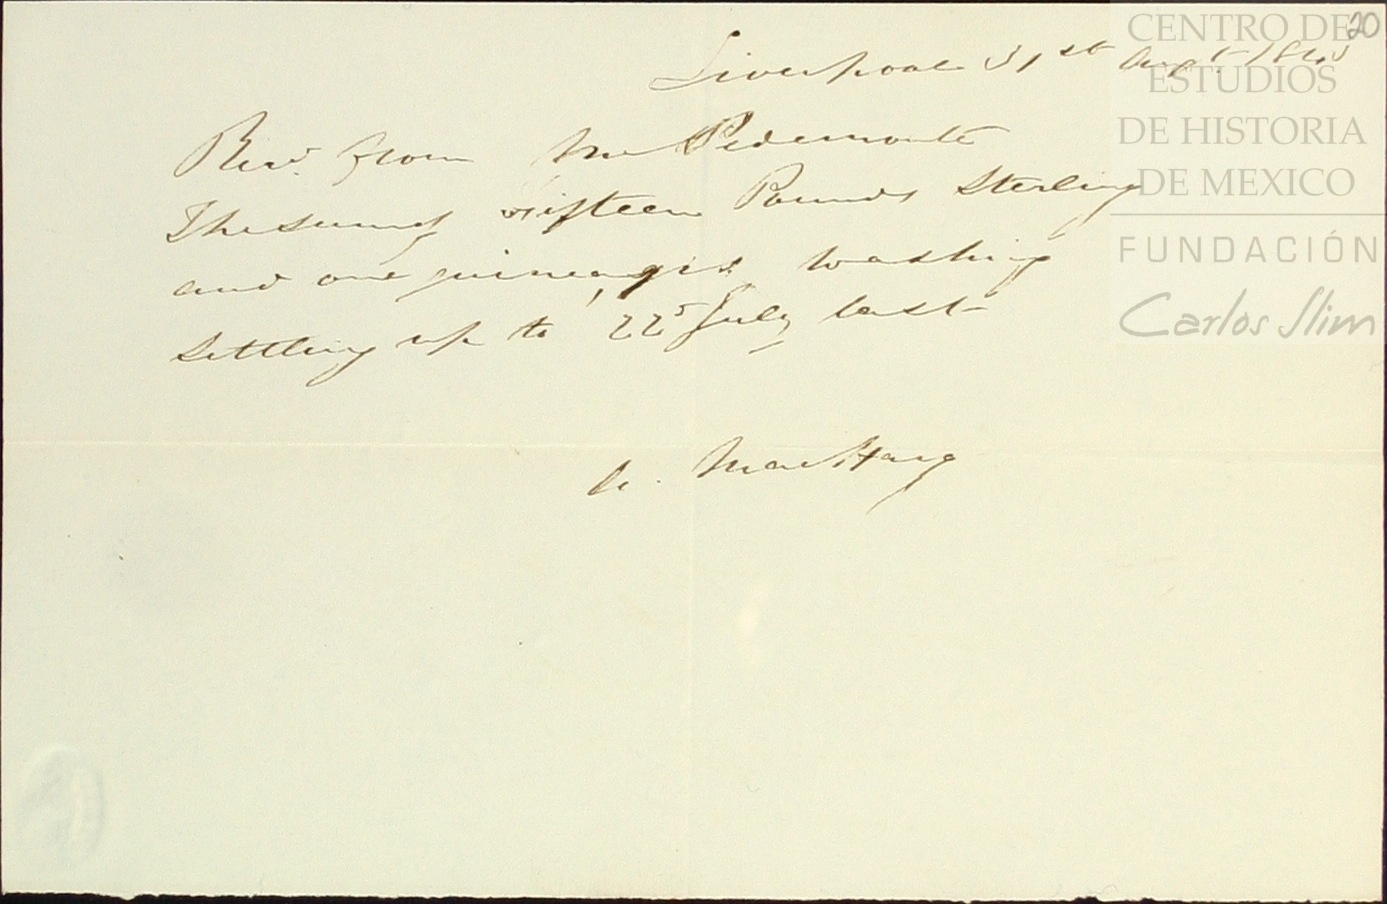 20
CENTRO DE
ESTUDIOS
DE HISTORIA
DE MEXICO
FUNDACIÓN
Carlos Slim
Liverpool 31st Augt.
Recd. from Mr Pedemonte
The sum of fifteen Pounds Sterling
and one guinea washing
settling up to 22d July last